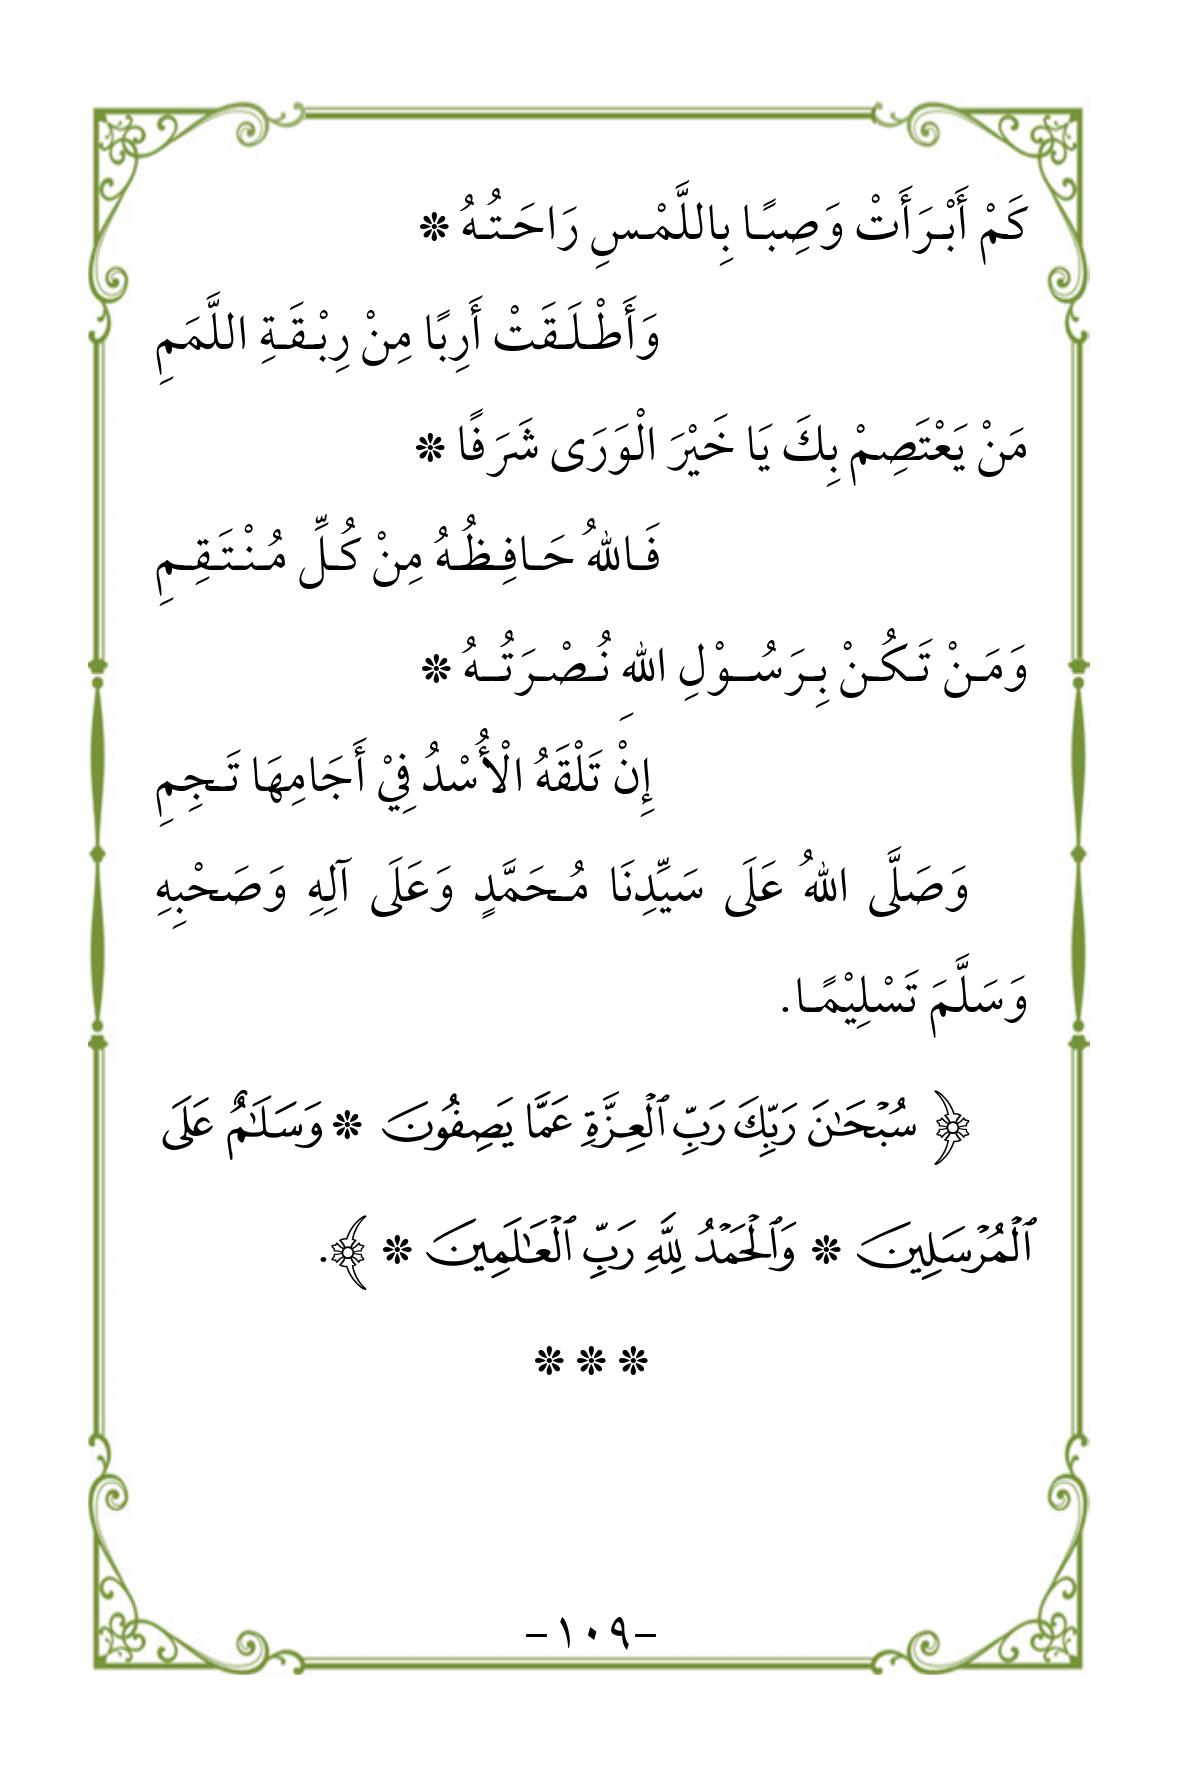 كَمْ أَبْرَأَتْ وَصِبًا بِاللَّمْسِ رَاحَتُهُ ❇
وَأَطْلَقَتْ أَرِبًا مِنْ رِبْقَةِ اللَّمَمِ
مَنْ يَعْتَصِمْ بِكَ يَا خَيْرَ الْوَرَى شَرَفًا ❇
فَاللهُ حَافِظُهُ مِنْ كُلِّ مُنْتَقِمِ
وَمَنْ تَكُنْ بِرَسُوْلِ اللهِ نُصْرَتُهُ ❇
إِنْ تَلْقَهُ الْأُسْدُ فِيْ أَجَامِهَا تَجِمِ
وَصَلَّى اللهُ عَلَى سَيِّدِنَا مُحَمَّدٍ وَعَلَى آلِهِ وَصَحْبِهِ
وَسَلَّمَ تَسْلِيْمًا.
﴿ سُبْحَٰنَ رَبِّكَ رَبِّ ٱلْعِزَّةِ عَمَّا يَصِفُونَ ❇ وَسَلَٰمٌ عَلَى
ٱلْمُرْسَلِينَ ❇ وَٱلْحَمْدُ لِلَّهِ رَبِّ ٱلْعَٰلَمِينَ ❇ ﴾.
❇ ❇ ❇
–١٠٩–